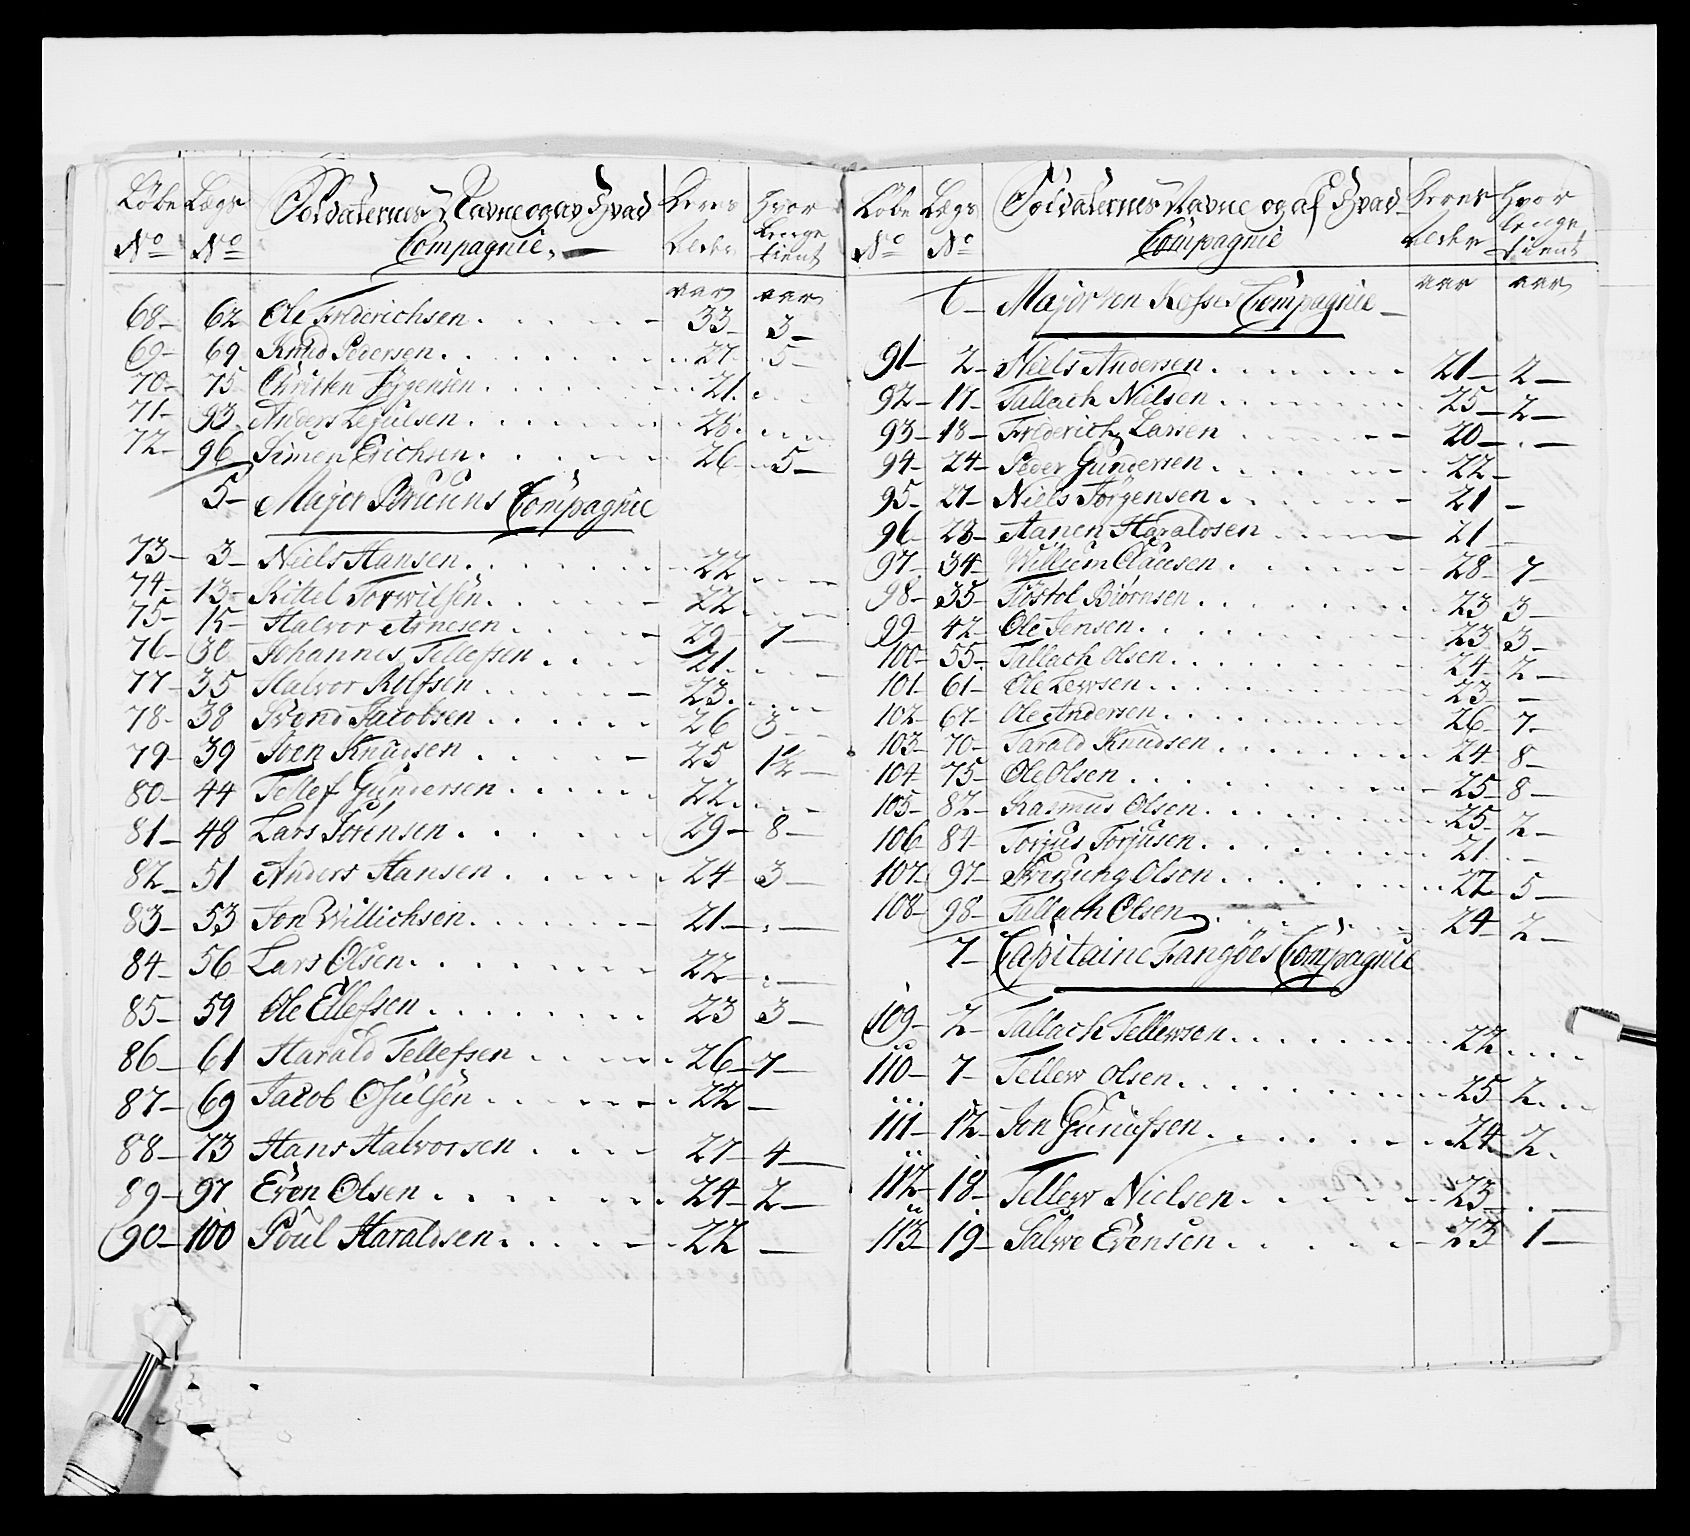 Löbe Lægs Soldaternes Navne og av hvad Deres Hvor
No No Compagnie. Alder længe tient
aar aar
68 - 62 Ole Friderichsen 33 - 3 -
69 - 69 Knud Pedersen 27 - 5 -
70 - 75 Christen Jörgensen 21
71 - 93 Anders Lejulsen 23
72 - 96 Simen Erichsen 26 - 5 -
5 - Major Bruuns Compagnie
73 - 3 - Niels Hansen 22
74 - 13 - Kittel Torwilsen 22
75 - 15 - Halvor Arnesen 29 - 7 -
76 - 30 Johannes Tellefsen 21
77 - 35 Halvor Rolfsen 23
78 - 38 Svend Jacobsen 26 3 -
79 - 39 Soen Knudsen 25 1½ -
80 - 44 Tellef Gundersen 22
81 - 48 Lars Sörensen 29 - 8 -
82 - 51 Anders Hansen 24 3 -
83 - 53 Jon Willichsen 21 -
84 - 56 Lars Olsen 22 -
85 - 59 Ole Ellefsen 23 3 -
86 - 61 Harald Tellefsen 26 - 7 -
87 - 69 Jacob Osulsen 22 -
88 - 73 Hans Halvorsen 27 - 4 -
89 - 97 Even Olsen 24 - 2 -
90 - 100 Poul Haraldsen 22 -
Löbe Lægs Soldaternes Navne og af hvad Deres Hvor
No No Compagnie Alder længe tient
aar aar
6 - Major von Kosses Compagnie -
91 - 2 - Niels Andersen 21 - 2 -
92 - 17 - Tallach Nielsen 25 - 2 -
93 - 18 - Friderich Larsen 20 -
94 - 24 - Peder Gundersen 22 -
95 - 27 - Niels Jörgensen 21 -
96 28 - Aanen Haraldsen 21 -
97 - 34 - Willum Clausen 28 - 7 -
98 - 35 - Töstol Biörnsen 23 3 -
99 - 42 - Ole Jensen 23 3 -
100 - 55 - Tallach Olsen 24 - 2 -
101 - 61 - Ole Lewsen 23 -
102 - 67 - Ole Andersen 26 - 7 -
103 - 70 - Tarald Knudsen 24 - 8 -
104 - 75 - Ole Olsen 25 8 -
105 - 82 - Rasmus Olsen 25 - 2 -
106 84 - Torjus Torjusen 21
107 - 97 - Olsen 27 - 5 -
108 - 98 - Tallach Olsen 24 - 2 -
7 - Capitaine Fangöes Compagnie
109 - 2 - Tallach Tellewsen 22
110 - 7 - Tellew Olsen 25 2
111 - 12 - Jon Gunufsen 24 - 2
112 - 18 - Tellew Nielsen 23 -
113 - 19 - Salwe Evensen 23 1 -